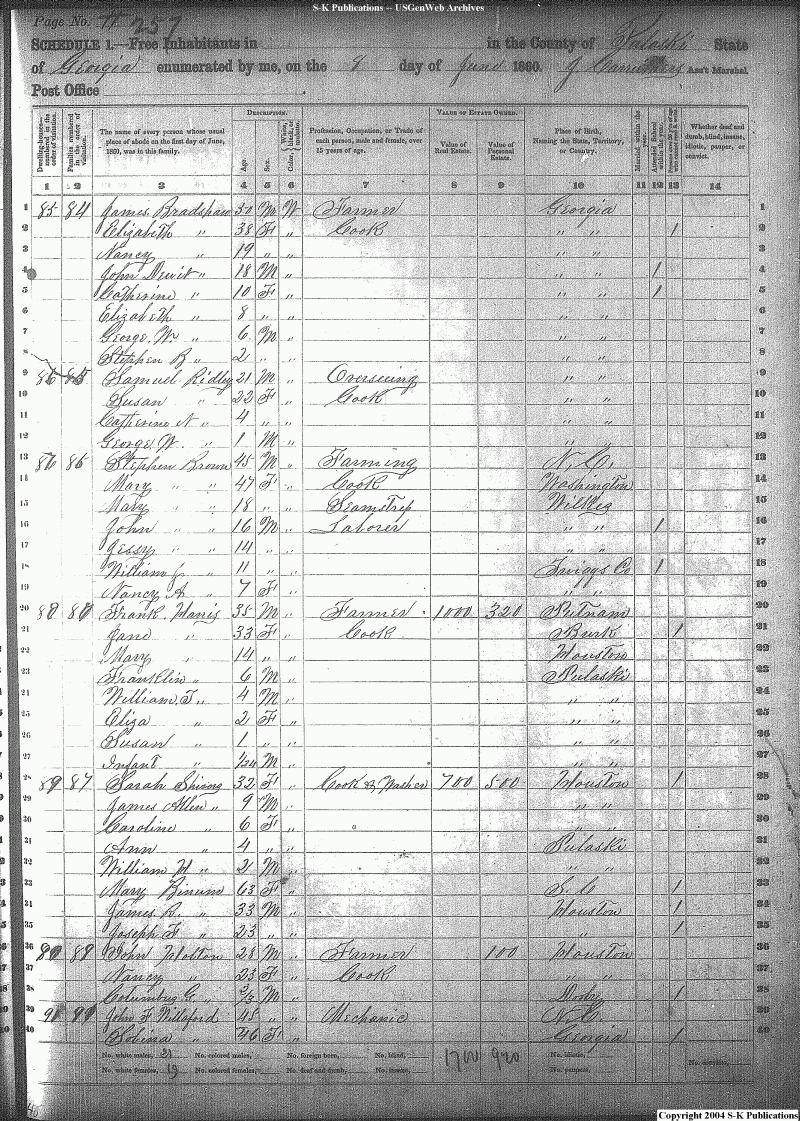 S-K Publications -- USGenWeb Archives
Page No. 257
SCHEDULE 1.—Free Inhabitants in in the County of Pulaski State
of Georgia enumerated by me, on the 8 day of June 1860. J Carruthers Ass't Marshal
Post Office
Dwelling-houses—numbered in the order of visitation.
Families numbered in the order of visitation.
The name of every person whose usual place of abode on the first day of June, 1860, was in this family.
DESCRIPTION.
Age.
Sex.
Color, White, black, or mulatto.
Profession, Occupation, or Trade of each person, male and female, over 15 years of age.
VALUE OF ESTATE OWNED.
Value of Real Estate.
Value of Personal Estate.
Place of Birth, Naming the State, Territory, or Country.
Married within the year.
Attended School within the year.
Persons over 20 y'rs of age who cannot read & write.
Whether deaf and dumb, blind, insane, idiotic, pauper, or convict.
1 2 3 4 5 6 7 8 9 10 11 12 13 14
1 85 84 James Bradshaw 50 M W Farmer Georgia 1
2 Elizabeth " 38 F " Cook " " 1 2
3 Nancy " 19 " " " " 3
4 John Dewit " 18 M " " " 1 4
5 Catherine " 10 F " " " 1 5
6 Elizabeth " 8 " " " " 6
7 George W. " 6 M " " " 7
8 Stephen B " 2 " " " " 8
9 86 85 Samuel Ridley 21 M " Overseeing " " 9
10 Susan " 22 F " Cook " " 10
11 Catherine A " 4 " " " " 11
12 George W. " 1 M " " " 12
13 Stephen Brown 45 M " Farming N. C. 13
14 Mary " " 47 F " Cook Washington 14
15 Mary " " 18 " " Seamstress 15
16 John " " 16 M " Laborer " " 1 16
17 Jessy " " 14 " " " " 17
18 William " 11 " " Twiggs Co 1 18
19 Nancy A " 7 F " " " 19
20 Frank Harris 35 M " Farmer 1000 320 Putnam 20
21 Jane " 33 F " Cook Burk 1 21
22 Mary " 14 " " Houston 22
23 Franklin " 6 M " Pulaski 23
24 William T. " 4 M " " " 24
25 Eliza " 2 F " " " 25
26 Susan " 1 " " " " 26
27 Infant " M " " " 27
28 89 87 Sarah 32 F " Cook & Washer 700 500 Houston 1 28
29 James Allen " 9 M " " " 29
30 Caroline " 6 F " " " 30
31 Ann " 4 " " Pulaski 31
32 William H " 2 M " " " 32
33 Mary 63 F " S. C 1 33
34 James R. " 33 M " Houston 1 34
35 Joseph F " 23 " " " 1 35
36 John 28 M " Farmer 100 Houston 36
37 Nancy " 23 F " Cook " 37
38 Columbus G. " M " Dooly 1 38
39 John F Willaford 45 " " Mechanic N. C 39
40 " 46 F " Georgia 1 40
No. white males, 21 No. colored males, No. foreign born, No. blind, 1700 920 No. idiotic, No. convicts,
No. white females, 19 No. colored females, No. deaf and dumb, No. insane, No. paupers,
Copyright 2004 S-K Publications